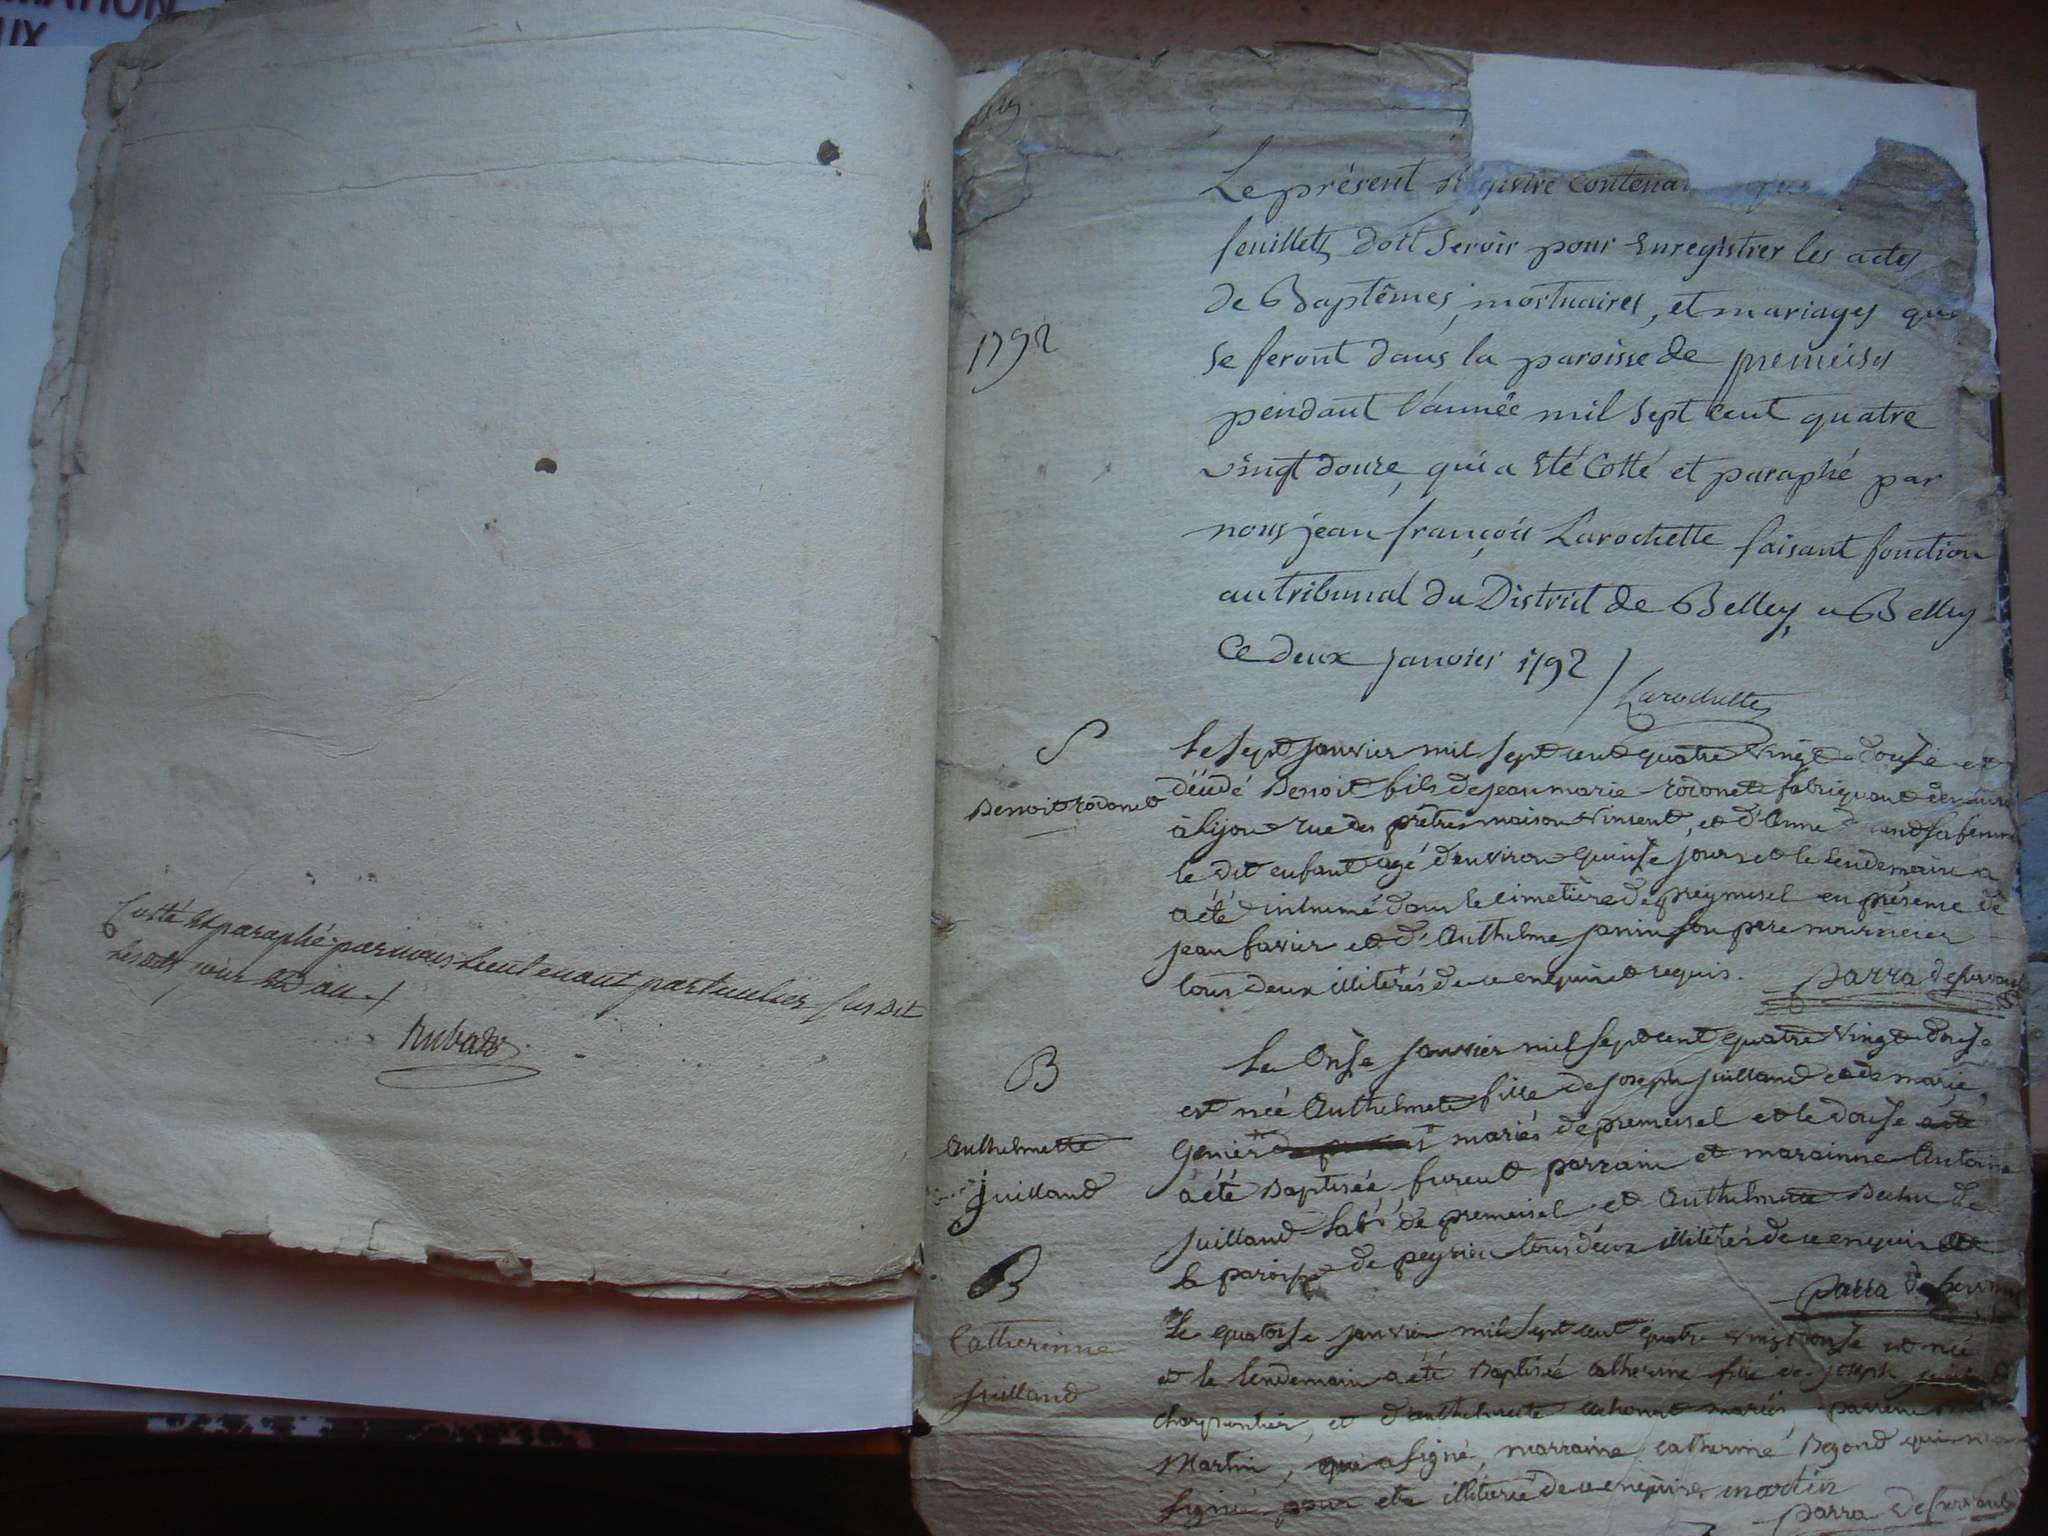 MATION
UX
Cotté et paraphé par nous Lieutenant particulier susdit
lesdits jour et an
Rubat
1792
Le présent Registre contenan
feuillets, doit servir pour enregistrer les actes
de Baptêmes, mortuaires, et mariages qui
se feront dans la paroisse de premeisel
pendant l'année mil sept cent quatre
vingt douze, qui a été Cotté et paraphé par
nous jean françois Larochette faisant fonction
au tribunal du District de Belley, a Belley
Ce deux janvier 1792
Larochette
S
Benoit rodonet
Le sept janvier mil sept cent quatre vingt douse est
décédé Benoit fils de jean marie rodonet fabriquant
à lijon rue des prêtres maison vincent, et d'Anne sa femme
le dit enfant agé d'environ quinse jours et le lendemain a
a été inhumé dans le cimetière de preymesel en présence de
jean favier et d'Anthelme janin son pere nourricier
tous deux illiterés de ce enquis et requis. parra
B
Anthelmette
juilland
Le Onse janvier mil sept cent quatre vingt douse
est née Anthelmete fille de joseph juilland et de marie
Genier mariés de premeisel et le douse
a été Baptisée furent parrain et marainne Antoine
juilland lab^r de premeisel et Anthelmette de
la paroisse de peyrieu tous deux illiterés de ce enquis
parra
B
Catherinne
juilland
Le quatorse janvier mil sept cent quatre vingt douse est née
et le lendemain a été Baptisée catherine fille de joseph juilland
charpentier, et d'anthelmette mariés, parrein
Martin, qui a signé, marraine catherine qui n'a
signé pour etre illiterée de ce enquise martin
parra